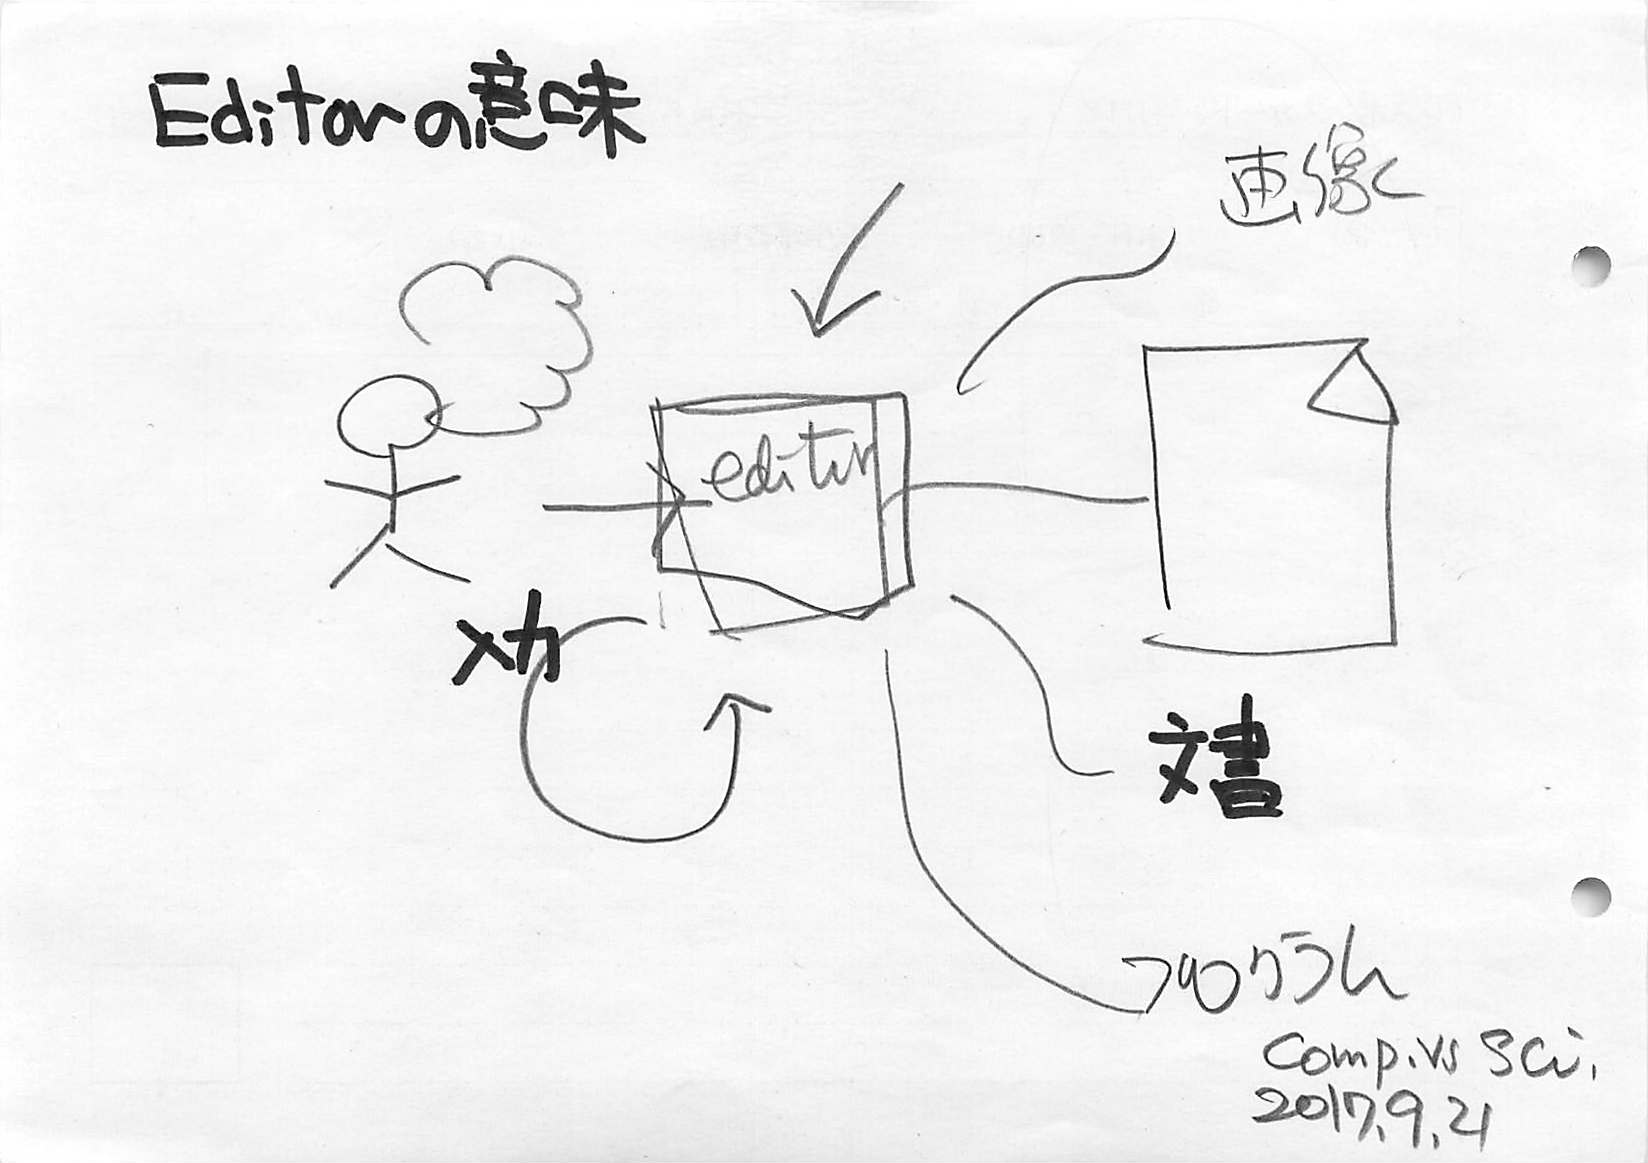 Editorの意味
画像
editor
文書
プログラム
Comp. vs Sci.
2017.9.21